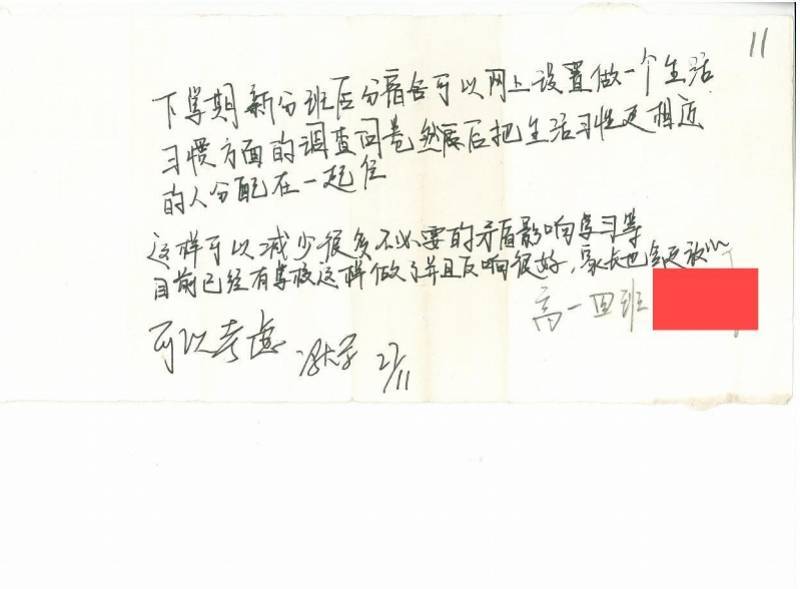 11
下学期新分班后分宿舍可以网上设置做一个生活
习惯方面的调查问卷然后把生活习性更相近
的人分配在一起住
这样可以减少很多不必要的矛盾影响学习等
目前已经有学校这样做了并且反响很好,家长也会更放心
高一四班
可以考虑